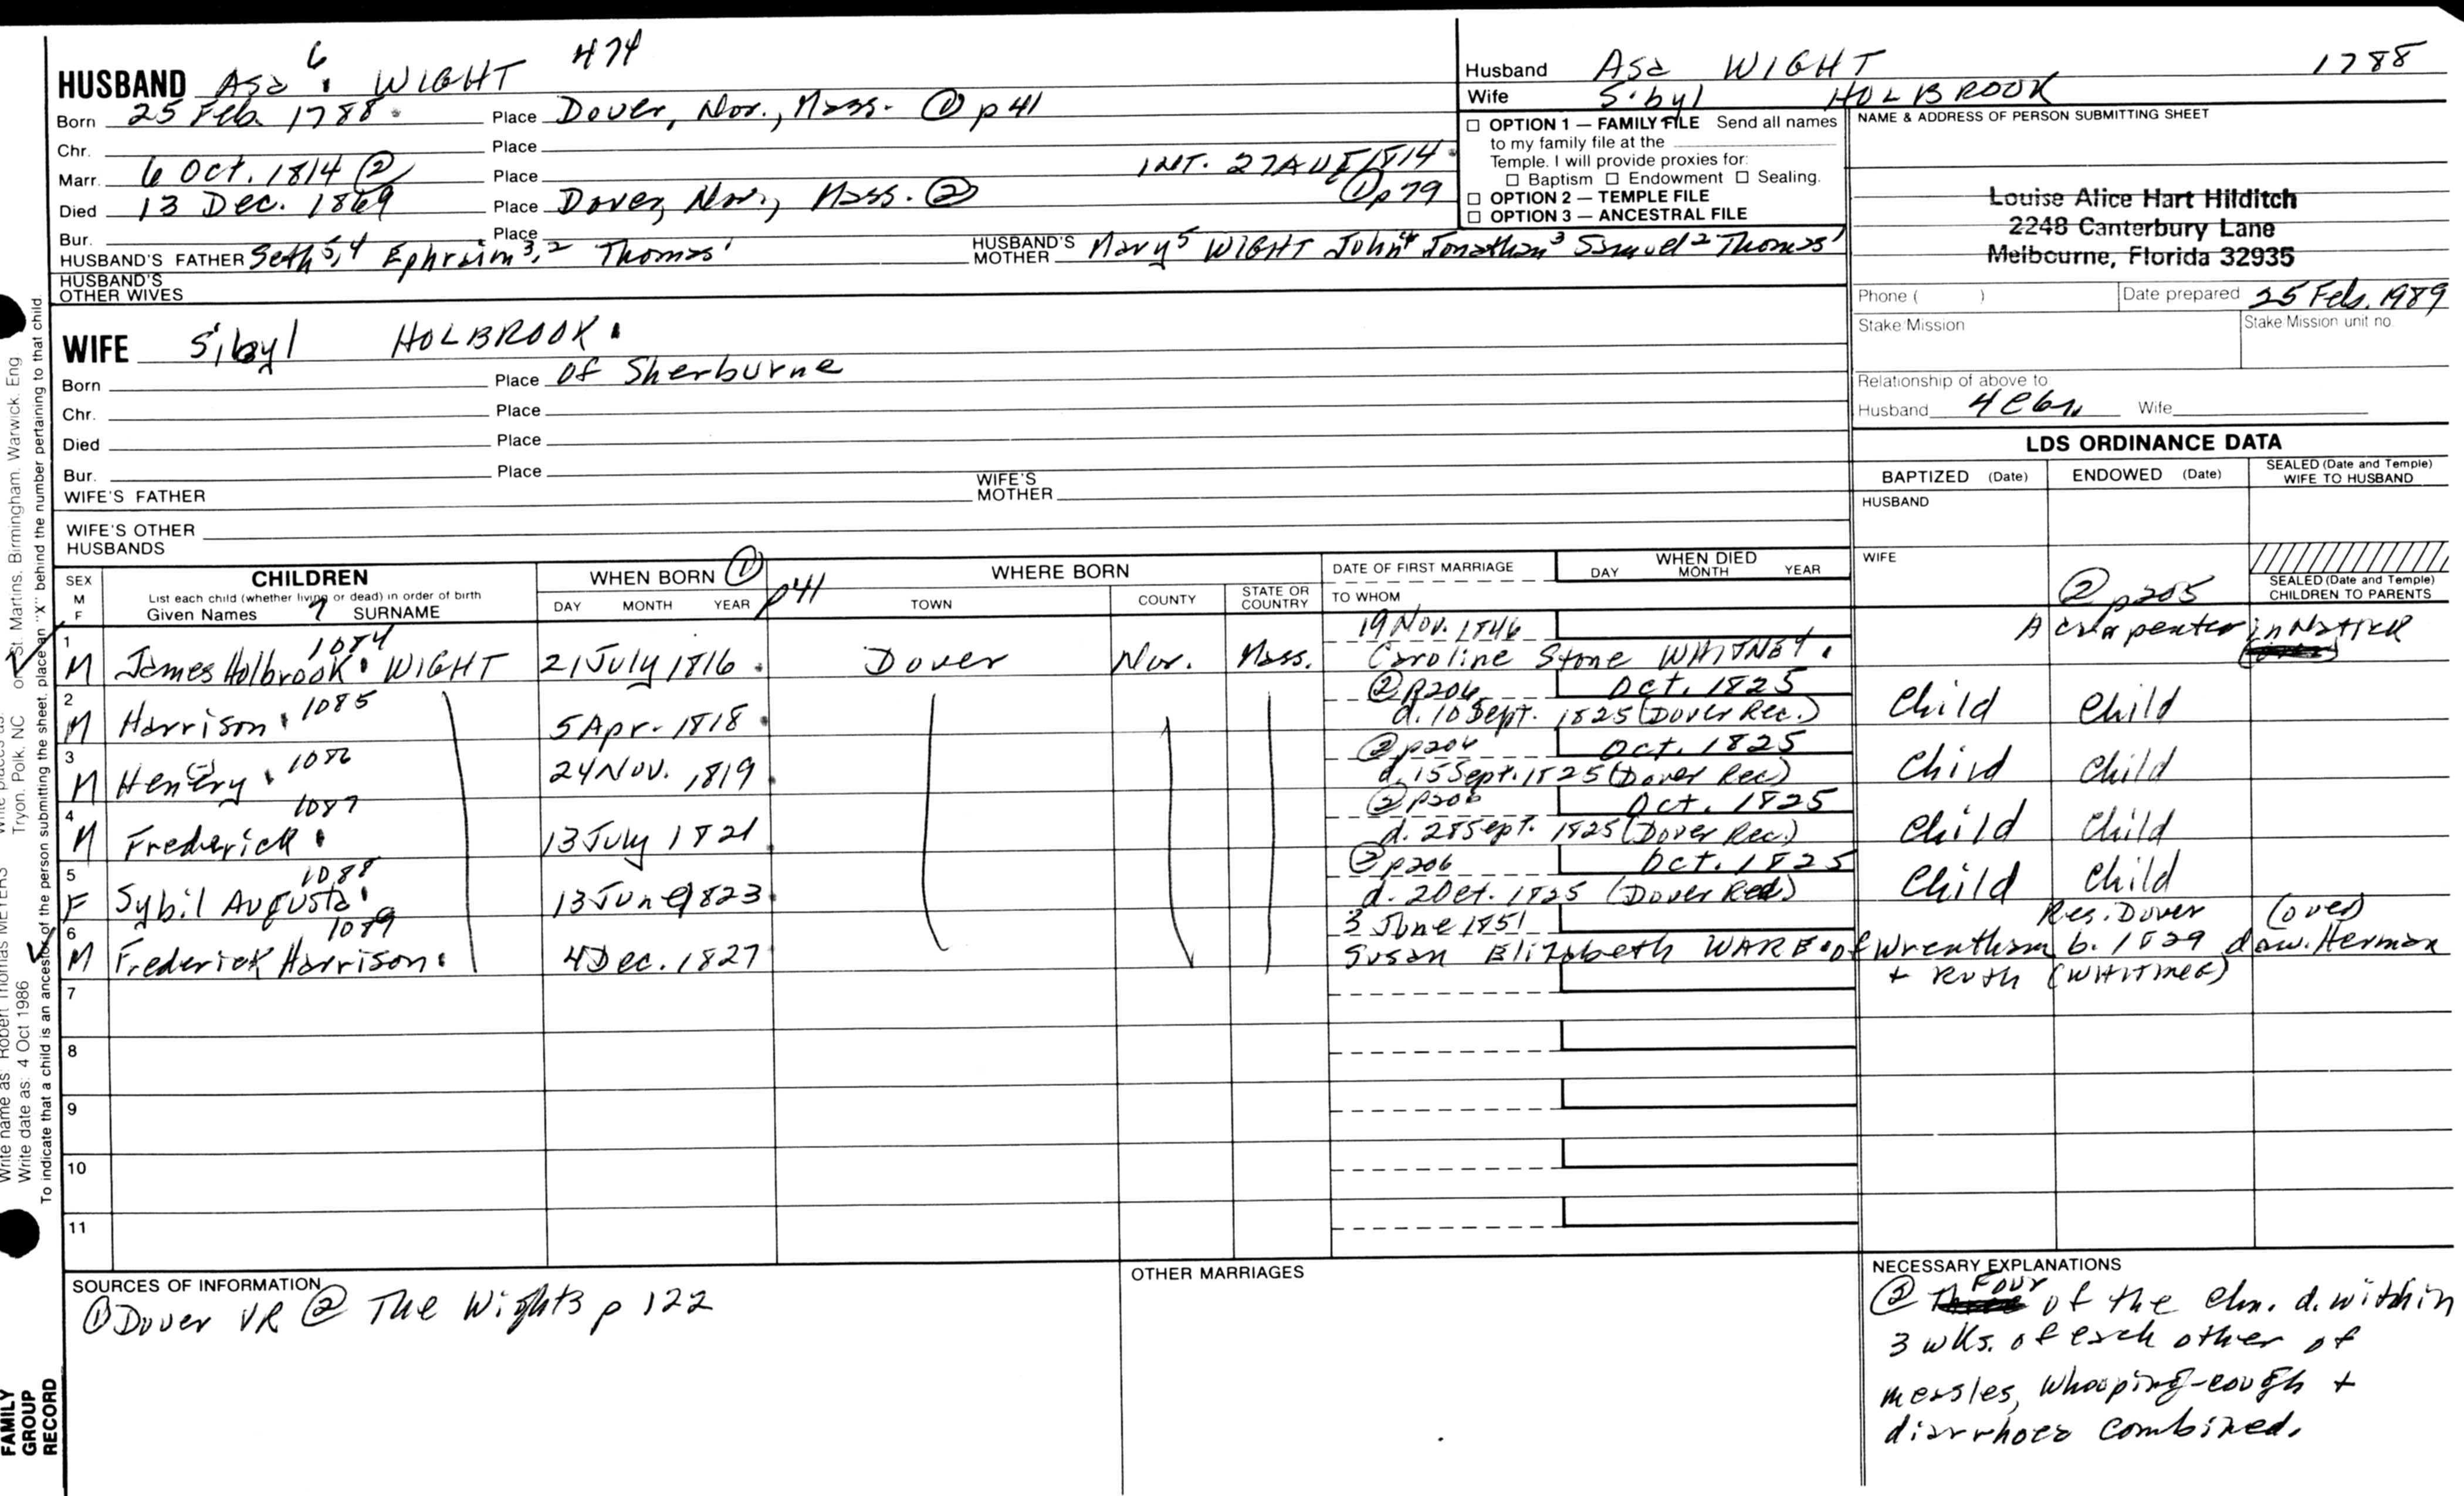 HUSBAND Asa 6 . WIGHT 474
Born 25 Feb. 1788. Place Dover, Nor., Mass. ① p 41
Chr. Place
Marr. 6 Oct. 1814 ② Place INT. 27 AUG 1814. ① p 79
Died 13 Dec. 1869 Place Dover, Nor., Mass. ②
Bur. Place
HUSBAND'S FATHER Seth 5,4 Ephraim 3,2 Thomas 1 HUSBAND'S MOTHER Mary 5 WIGHT John 4 Jonathan 3 Samuel 2 Thomas 1
HUSBAND'S OTHER WIVES
WIFE Sibyl HOLBROOK.
Born Place Of Sherburne
Chr. Place
Died Place
Bur. Place
WIFE'S FATHER WIFE'S MOTHER
WIFE'S OTHER HUSBANDS
Husband Asa WIGHT 1788
Wife Sibyl HOLBROOK
☐ OPTION 1 — FAMILY FILE Send all names
to my family file at the
Temple. I will provide proxies for:
☐ Baptism ☐ Endowment ☐ Sealing.
☐ OPTION 2 — TEMPLE FILE
☐ OPTION 3 — ANCESTRAL FILE
NAME & ADDRESS OF PERSON SUBMITTING SHEET
Louise Alice Hart Hilditch
2248 Canterbury Lane
Melbourne, Florida 32935
Phone ( ) Date prepared 25 Feb. 1989
Stake/Mission Stake Mission unit no.
Relationship of above to
Husband Wife
LDS ORDINANCE DATA
BAPTIZED (Date) ENDOWED (Date) SEALED (Date and Temple) WIFE TO HUSBAND
HUSBAND
WIFE
SEALED (Date and Temple) CHILDREN TO PARENTS
② p205
SEX M F CHILDREN WHEN BORN ① p41 WHERE BORN DATE OF FIRST MARRIAGE WHEN DIED
List each child (whether living or dead) in order of birth
Given Names 7 SURNAME DAY MONTH YEAR TOWN COUNTY STATE OR COUNTRY TO WHOM DAY MONTH YEAR
1 1084 19 Nov. 1846 A carpenter in Natick
M James Holbrook. WIGHT 21 July 1816. Dover Nor. Mass. Caroline Stone WHITNEY.
2 1085 ② p206 Oct. 1825
M Harrison. 5 Apr. 1818. d. 10 Sept. 1825 (Dover Rec.) Child Child
3 1086 ② p206 Oct. 1825
M Hen(e)ry. 24 Nov. 1819. d. 15 Sept. 1825 (Dover Rec) Child Child
4 1087 ② p206 Oct. 1825
M Frederick. 13 July 1821 d. 28 Sept. 1825 (Dover Rec.) Child Child
5 1088 ② p206 Oct. 1825
F Sybil Augusta. 13 June 1823. d. 2 Oct. 1825 (Dover Rec.) Child Child
6 1089 3 June 1851 Res. Dover (over)
M Frederick Harrison. 4 Dec. 1827 Susan Elizabeth WARE. of Wrentham b. 1829 dau. Herman
+ Ruth
7
8
9
10
11
SOURCES OF INFORMATION
① Dover VR ② The Wights p 122
OTHER MARRIAGES
NECESSARY EXPLANATIONS
② Four of the chn. d. within
3 wks. of each other of
measles, whooping-cough +
diarrhoea combined.
St. Martins, Birmingham, Warwick, Eng
Tryon, Polk, NC
Write name as: Robert Thomas MEYERS
Write date as: 4 Oct 1986
To indicate that a child is an ancestor of the person submitting the sheet, place an "X" behind the number pertaining to that child.
FAMILY
GROUP
RECORD